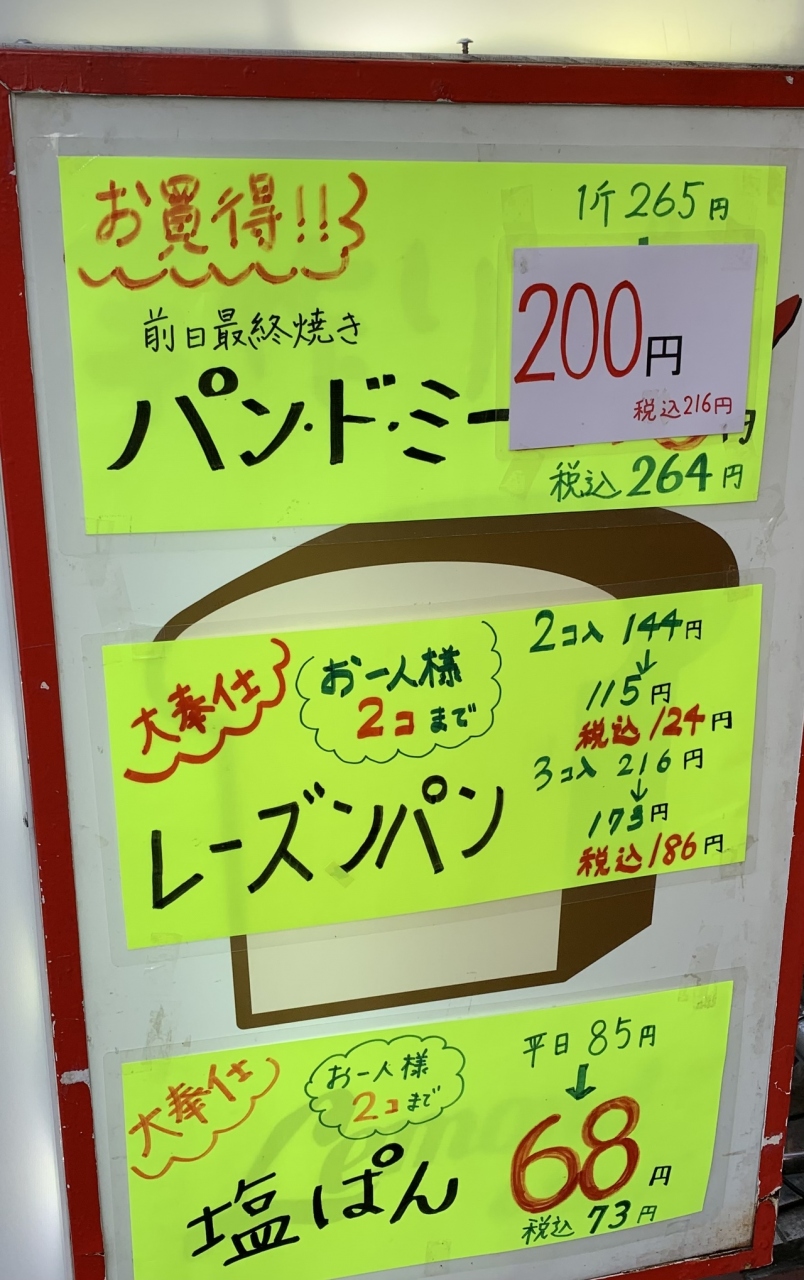 お買得!!
1斤 265円
200円
税込216円
前日最終焼き
パン・ド・ミー
円
税込 264円
大奉仕
お一人様
2コまで
2コ入 144円
↓
115円
税込124円
3コ入 216円
↓
173円
税込186円
レーズンパン
大奉仕
お一人様
2コまで
平日 85円
↓
68円
税込 73円
塩ぱん